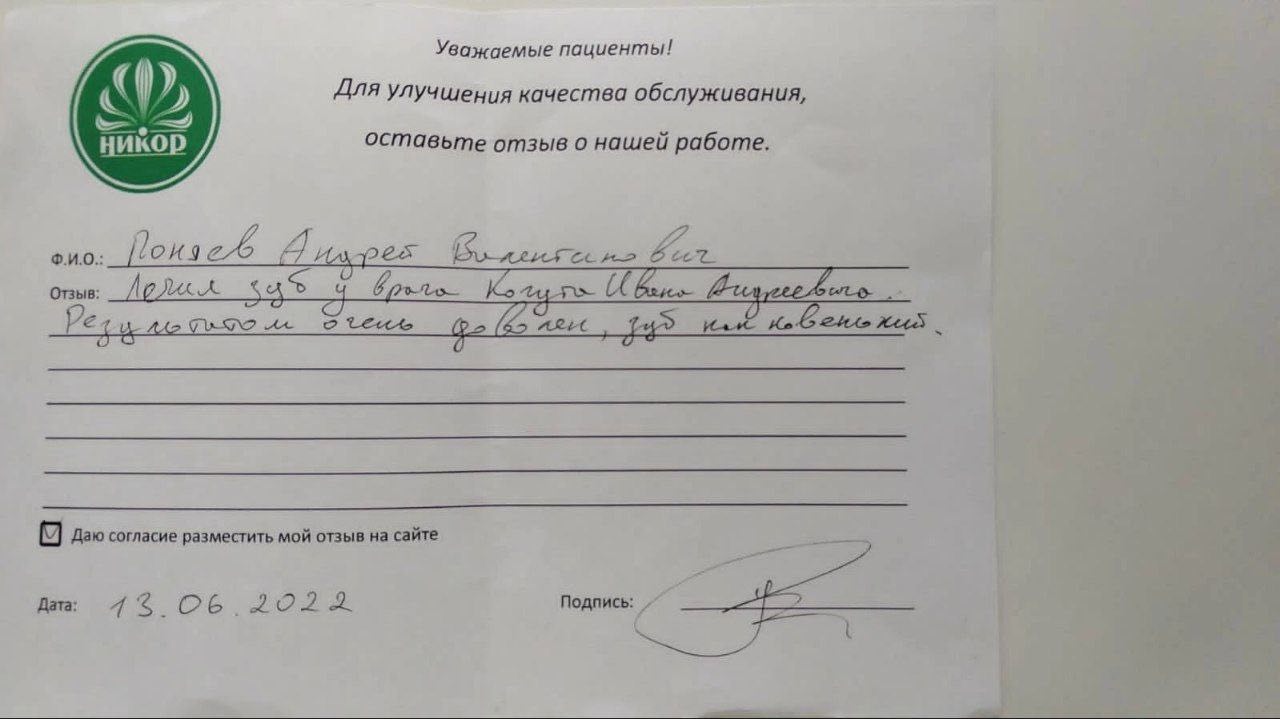 НИКОР
Уважаемые пациенты!
Для улучшения качества обслуживания,
оставьте отзыв о нашей работе.
Ф.И.О.: Поняев Андрей Валентинович
Отзыв: Лечил зуб у врача Когута Ивана Андреевича.
Результатом очень доволен, зуб как новенький.
Даю согласие разместить мой отзыв на сайте
Дата: 13.06.2022
Подпись: